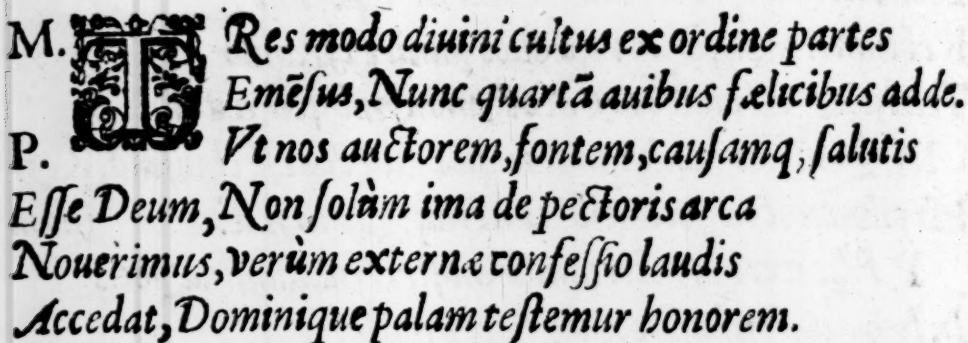 M. TRes modo diuini cultus ex ordine partes
Emẽſus, Nunc quartã auibus fælicibus adde.
P. Vt nos auctorem, fontem, cauſamq, ſalutis
Eſſe Deum, Non ſolùm ima de pectoris arca
Nouerimus, verùm externæ confeſſio laudis
Accedat, Dominique palam teſtemur honorem.